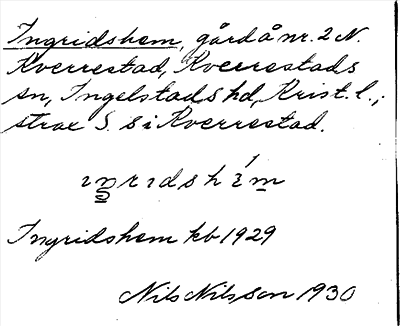 Ingridshem, gård å nr. 2 N.
Kverrestad, Kverrestads
sn, Ingelstads hd, Krist. l.,;
strax S. s i Kverrestad.
Ingridshem kb 1929
Nils Nilsson 1930